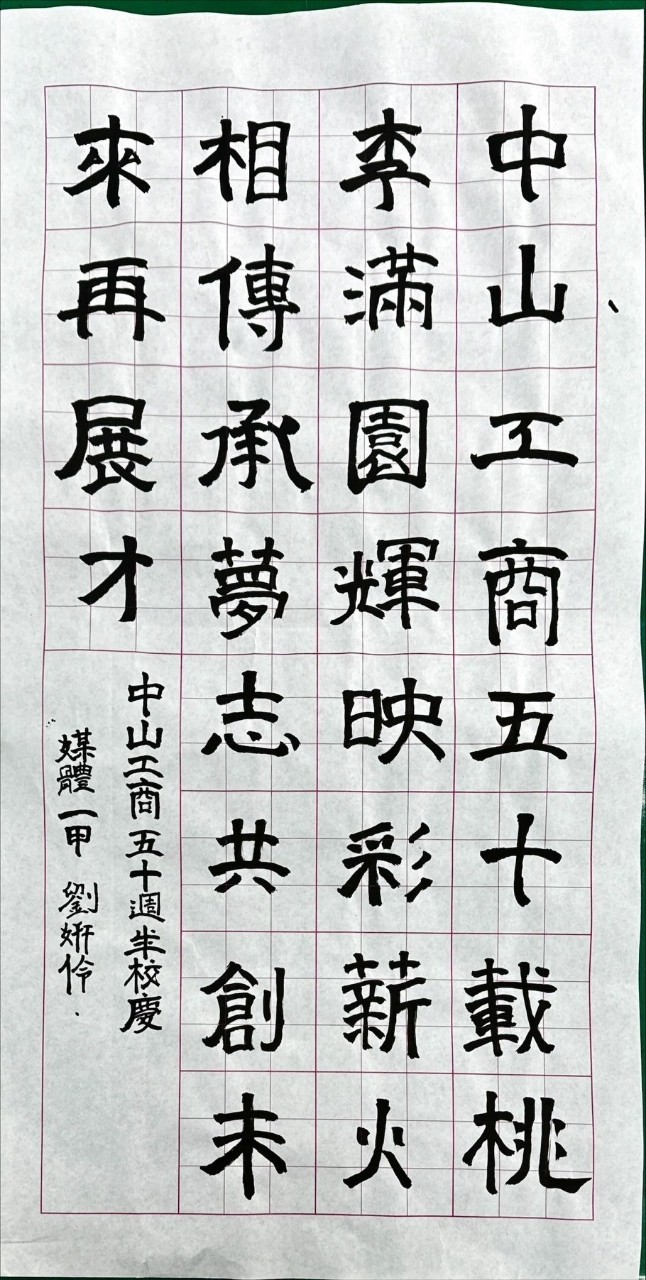 中山工商五十載桃
李滿園輝映彩薪火
相傳承夢志共創未
來再展才
中山工商五十週年校慶
媒體一甲 劉妍伶